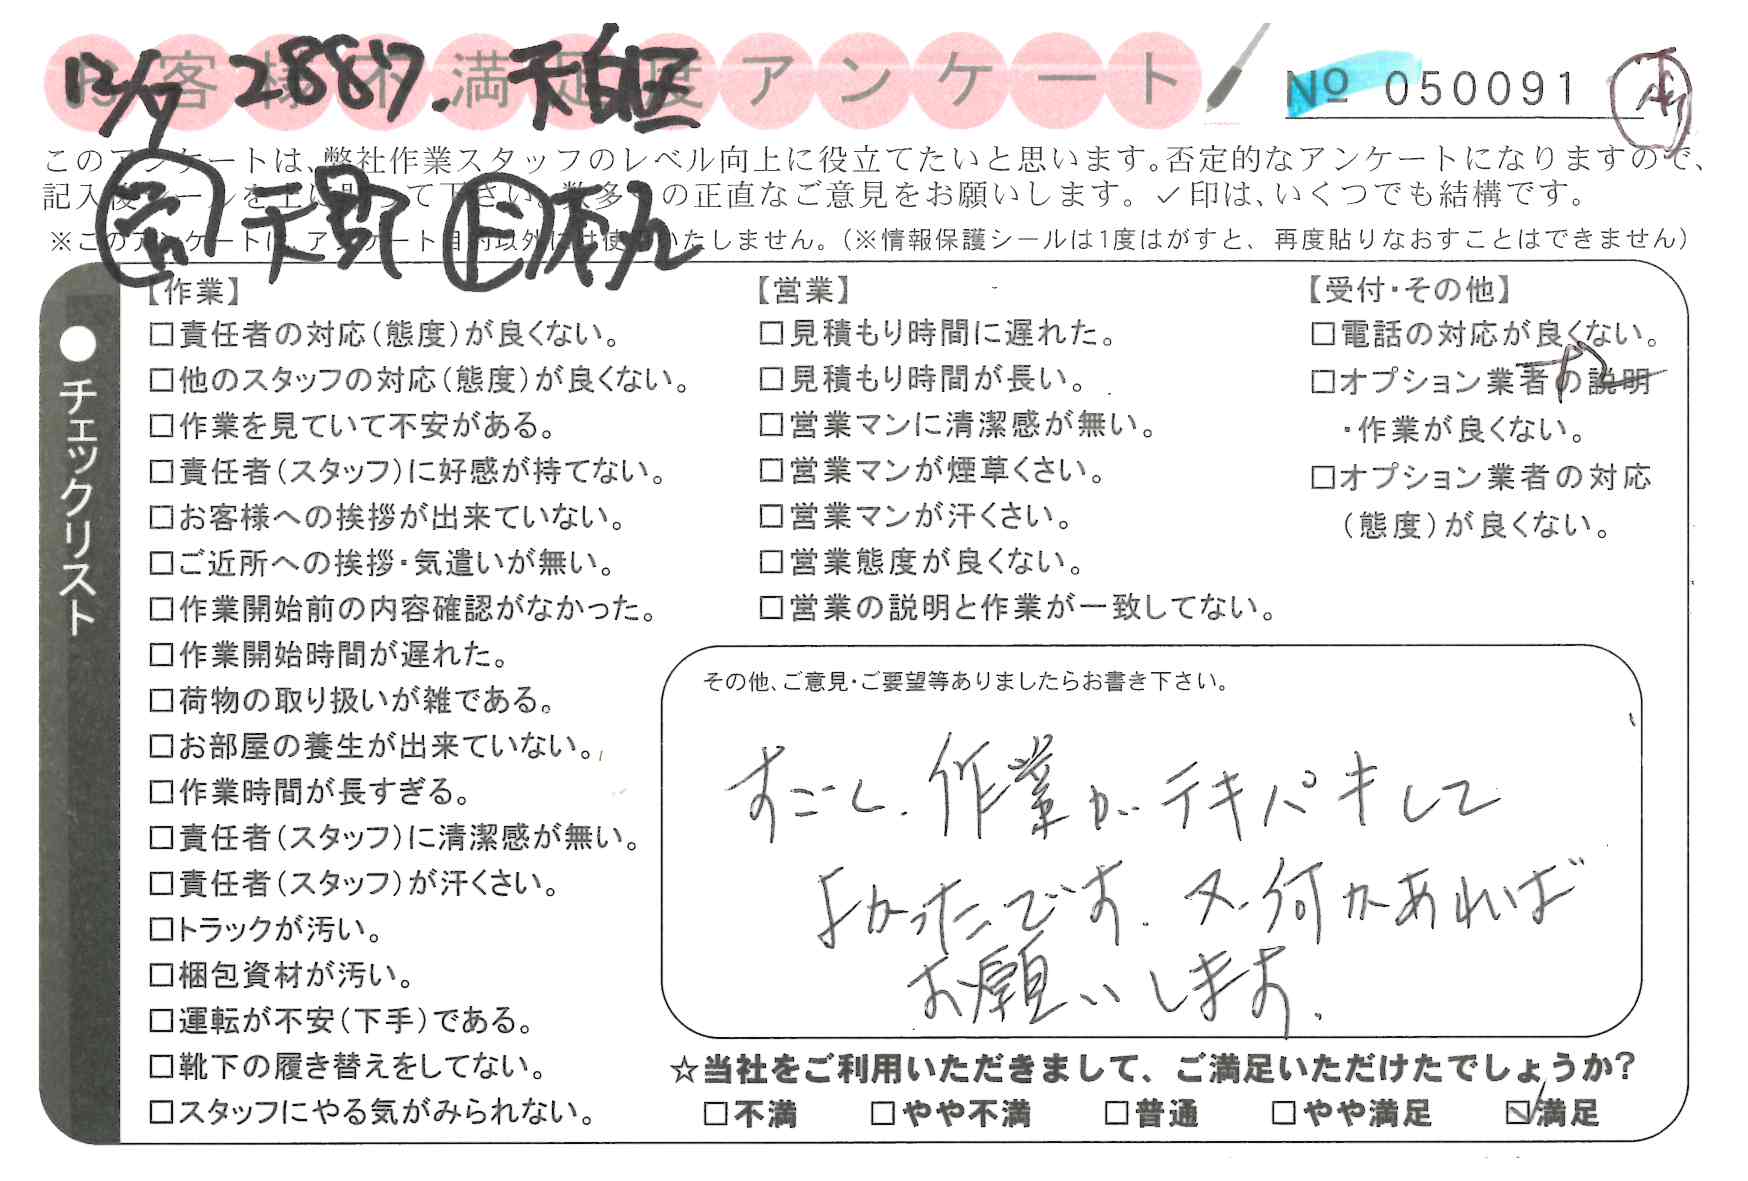 お客様不満足度アンケート
12/7 2887. 天白区
№ 050091
このアンケートは、弊社作業スタッフのレベル向上に役立てたいと思います。否定的なアンケートになりますので、
記入後シールを上に貼って下さい。数多くの正直なご意見をお願いします。✓印は、いくつでも結構です。
※このアンケートは、アンケート目的以外には使用いたしません。(※情報保護シールは1度はがすと、再度貼りなおすことはできません)
●チェックリスト
【作業】
□責任者の対応(態度)が良くない。
□他のスタッフの対応(態度)が良くない。
□作業を見ていて不安がある。
□責任者(スタッフ)に好感が持てない。
□お客様への挨拶が出来ていない。
□ご近所への挨拶・気遣いが無い。
□作業開始前の内容確認がなかった。
□作業開始時間が遅れた。
□荷物の取り扱いが雑である。
□お部屋の養生が出来ていない。
□作業時間が長すぎる。
□責任者(スタッフ)に清潔感が無い。
□責任者(スタッフ)が汗くさい。
□トラックが汚い。
□梱包資材が汚い。
□運転が不安(下手)である。
□靴下の履き替えをしてない。
□スタッフにやる気がみられない。
【営業】
□見積もり時間に遅れた。
□見積もり時間が長い。
□営業マンに清潔感が無い。
□営業マンが煙草くさい。
□営業マンが汗くさい。
□営業態度が良くない。
□営業の説明と作業が一致してない。
【受付・その他】
□電話の対応が良くない。
□オプション業者の説明
・作業が良くない。
□オプション業者の対応
(態度)が良くない。
その他、ご意見・ご要望等ありましたらお書き下さい。
すごし、作業が テキパキして
よかったです。又、何かあれば
お願いします。
☆当社をご利用いただきまして、ご満足いただけたでしょうか?
□不満 □やや不満 □普通 □やや満足 ☑満足